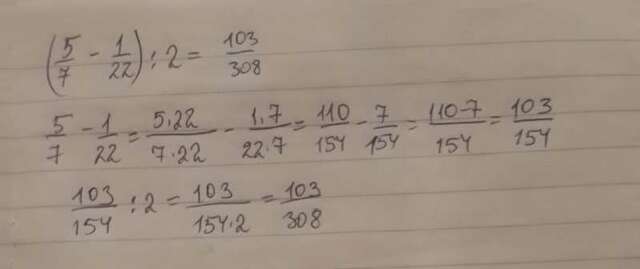 (5/7 - 1/22) : 2 = 103/308
5/7 - 1/22 = 5·22/7·22 - 1·7/22·7 = 110/154 - 7/154 = 110-7/154 = 103/154
103/154 : 2 = 103/154·2 = 103/308